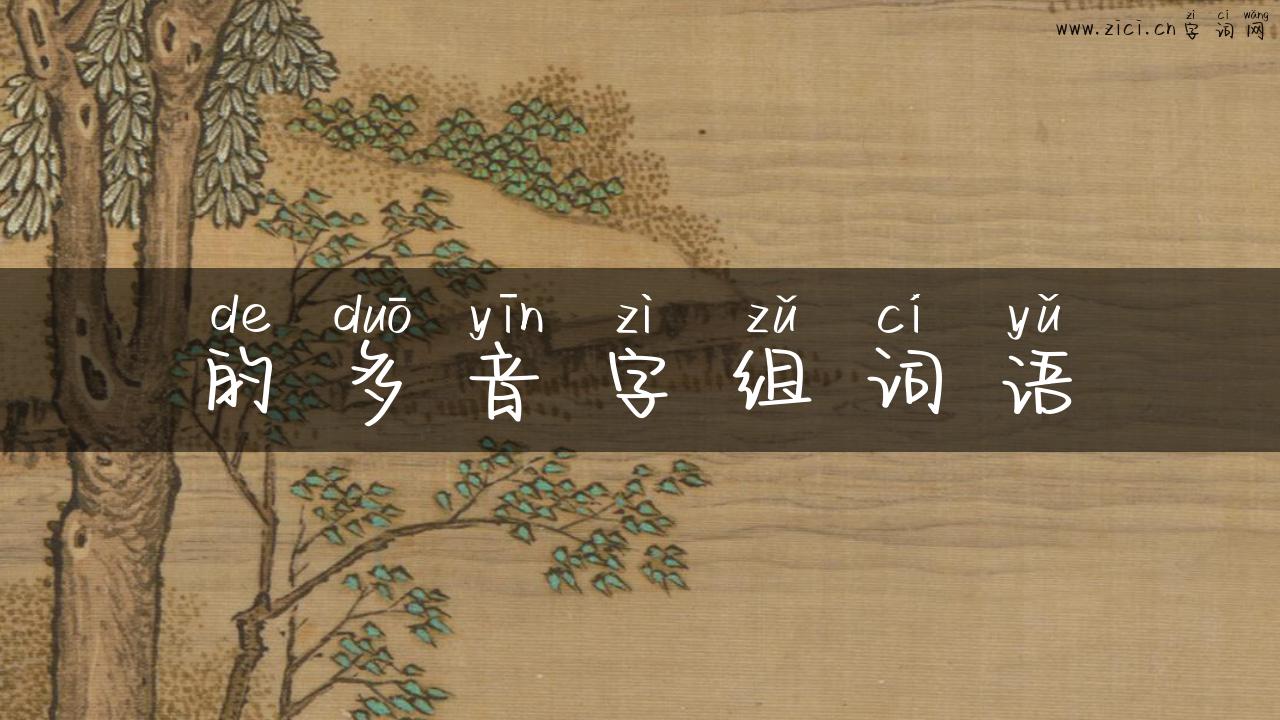 zì cí wǎng
www.zici.cn 字词网
de duō yīn zì zǔ cí yǔ
的多音字组词语